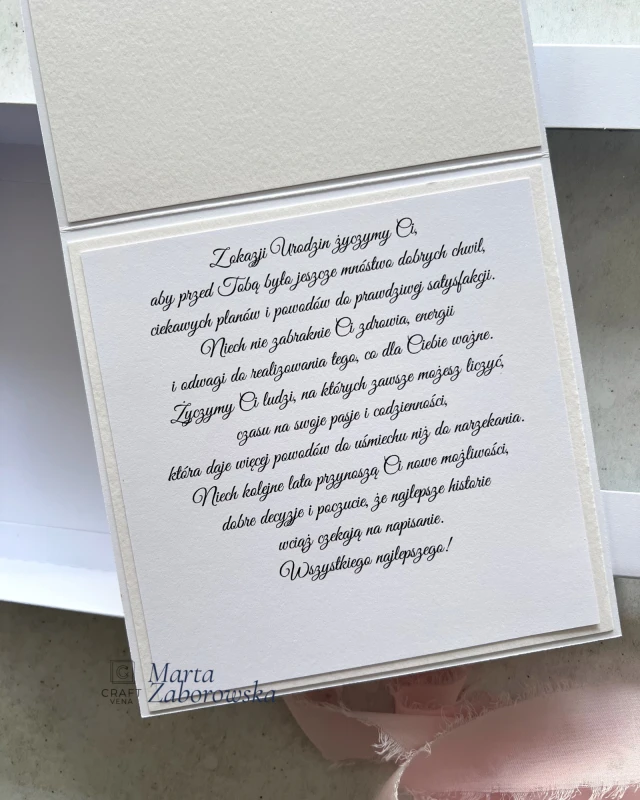 Z okazji Urodzin życzymy Ci,
aby przed Tobą było jeszcze mnóstwo dobrych chwil,
ciekawych planów i powodów do prawdziwej satysfakcji.
Niech nie zabraknie Ci zdrowia, energii
i odwagi do realizowania tego, co dla Ciebie ważne.
Życzymy Ci ludzi, na których zawsze możesz liczyć,
czasu na swoje pasje i codzienności,
która daje więcej powodów do uśmiechu niż do narzekania.
Niech kolejne lata przynoszą Ci nowe możliwości,
dobre decyzje i poczucie, że najlepsze historie
wciąż czekają na napisanie.
Wszystkiego najlepszego!
CRAFT
VENA
Marta
Zaborowska